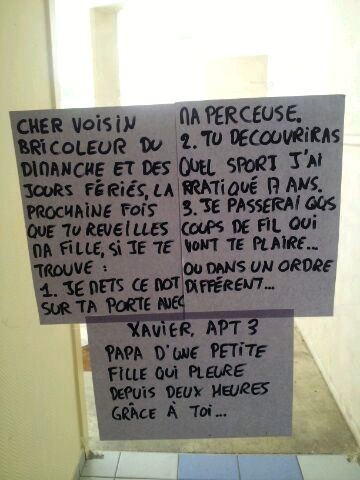 CHER VOISIN
BRICOLEUR DU
DIMANCHE ET DES
JOURS FÉRIÉS, LA
PROCHAINE FOIS
QUE TU REVEILLES
MA FILLE, SI JE TE
TROUVE :
1. JE METS CE MOT
SUR TA PORTE AVEC
MA PERCEUSE.
2. TU DECOUVRIRAS
QUEL SPORT J'AI
PRATIQUÉ 17 ANS.
3. JE PASSERAI QQS
COUPS DE FIL QUI
VONT TE PLAIRE...
OU DANS UN ORDRE
DIFFÉRENT...
XAVIER, APT 3
PAPA D'UNE PETITE
FILLE QUI PLEURE
DEPUIS DEUX HEURES
GRÂCE À TOI...